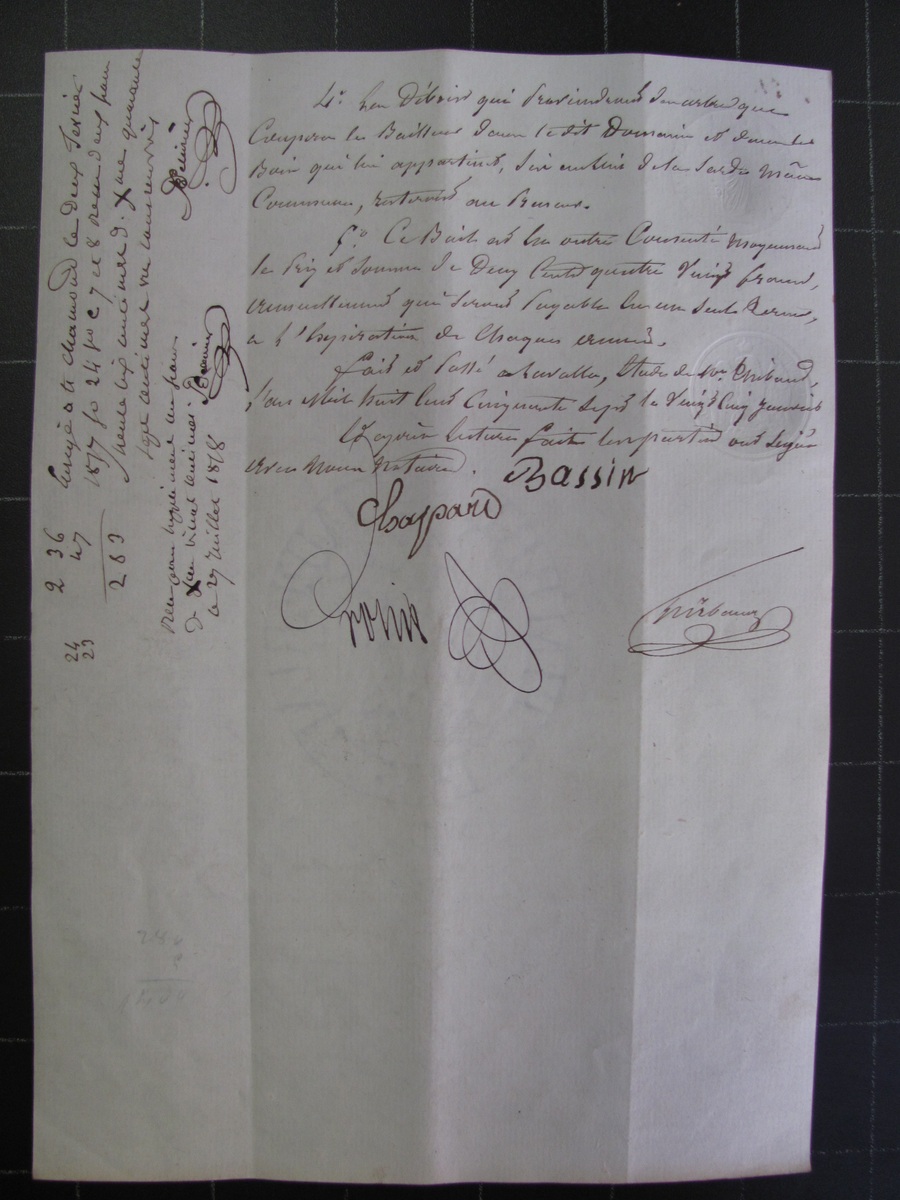 4° Les Débris qui Proviendront des arbres que
Coupera le Bailleur dans le dit Domaine et dans les
Bois qui lui appartient, Situés au lieu de la Sarda même
Commune, resteront au Preneur.
5° Ce Bail est en outre Consenti moyennant
le Prix et Somme de Deux Cents quatre Vingt francs,
annuellement qui seront Payable En un Seul Terme,
a l'Expiration de Chaques année.
fait et Passé a Lavalla, Etude de Me Thibaud,
l'an Mil huit Cent Cinquante Sept le Vingt Cinq Janvier
Et après lecture faite les parties ont Signé
avec Nous Notaire.
Bassin
Chaspard
Thibaud
Enregé à St Chamond le Deux Février
1857 fo 24 ro C 7 et 8 Reçu deux francs
trente six centimes d. Xme quarante
sept centimes
Reçu pour supplément un franc
Dx vingt centimes
le 27 Juillet 1858
2 36
47
2 83
24
23